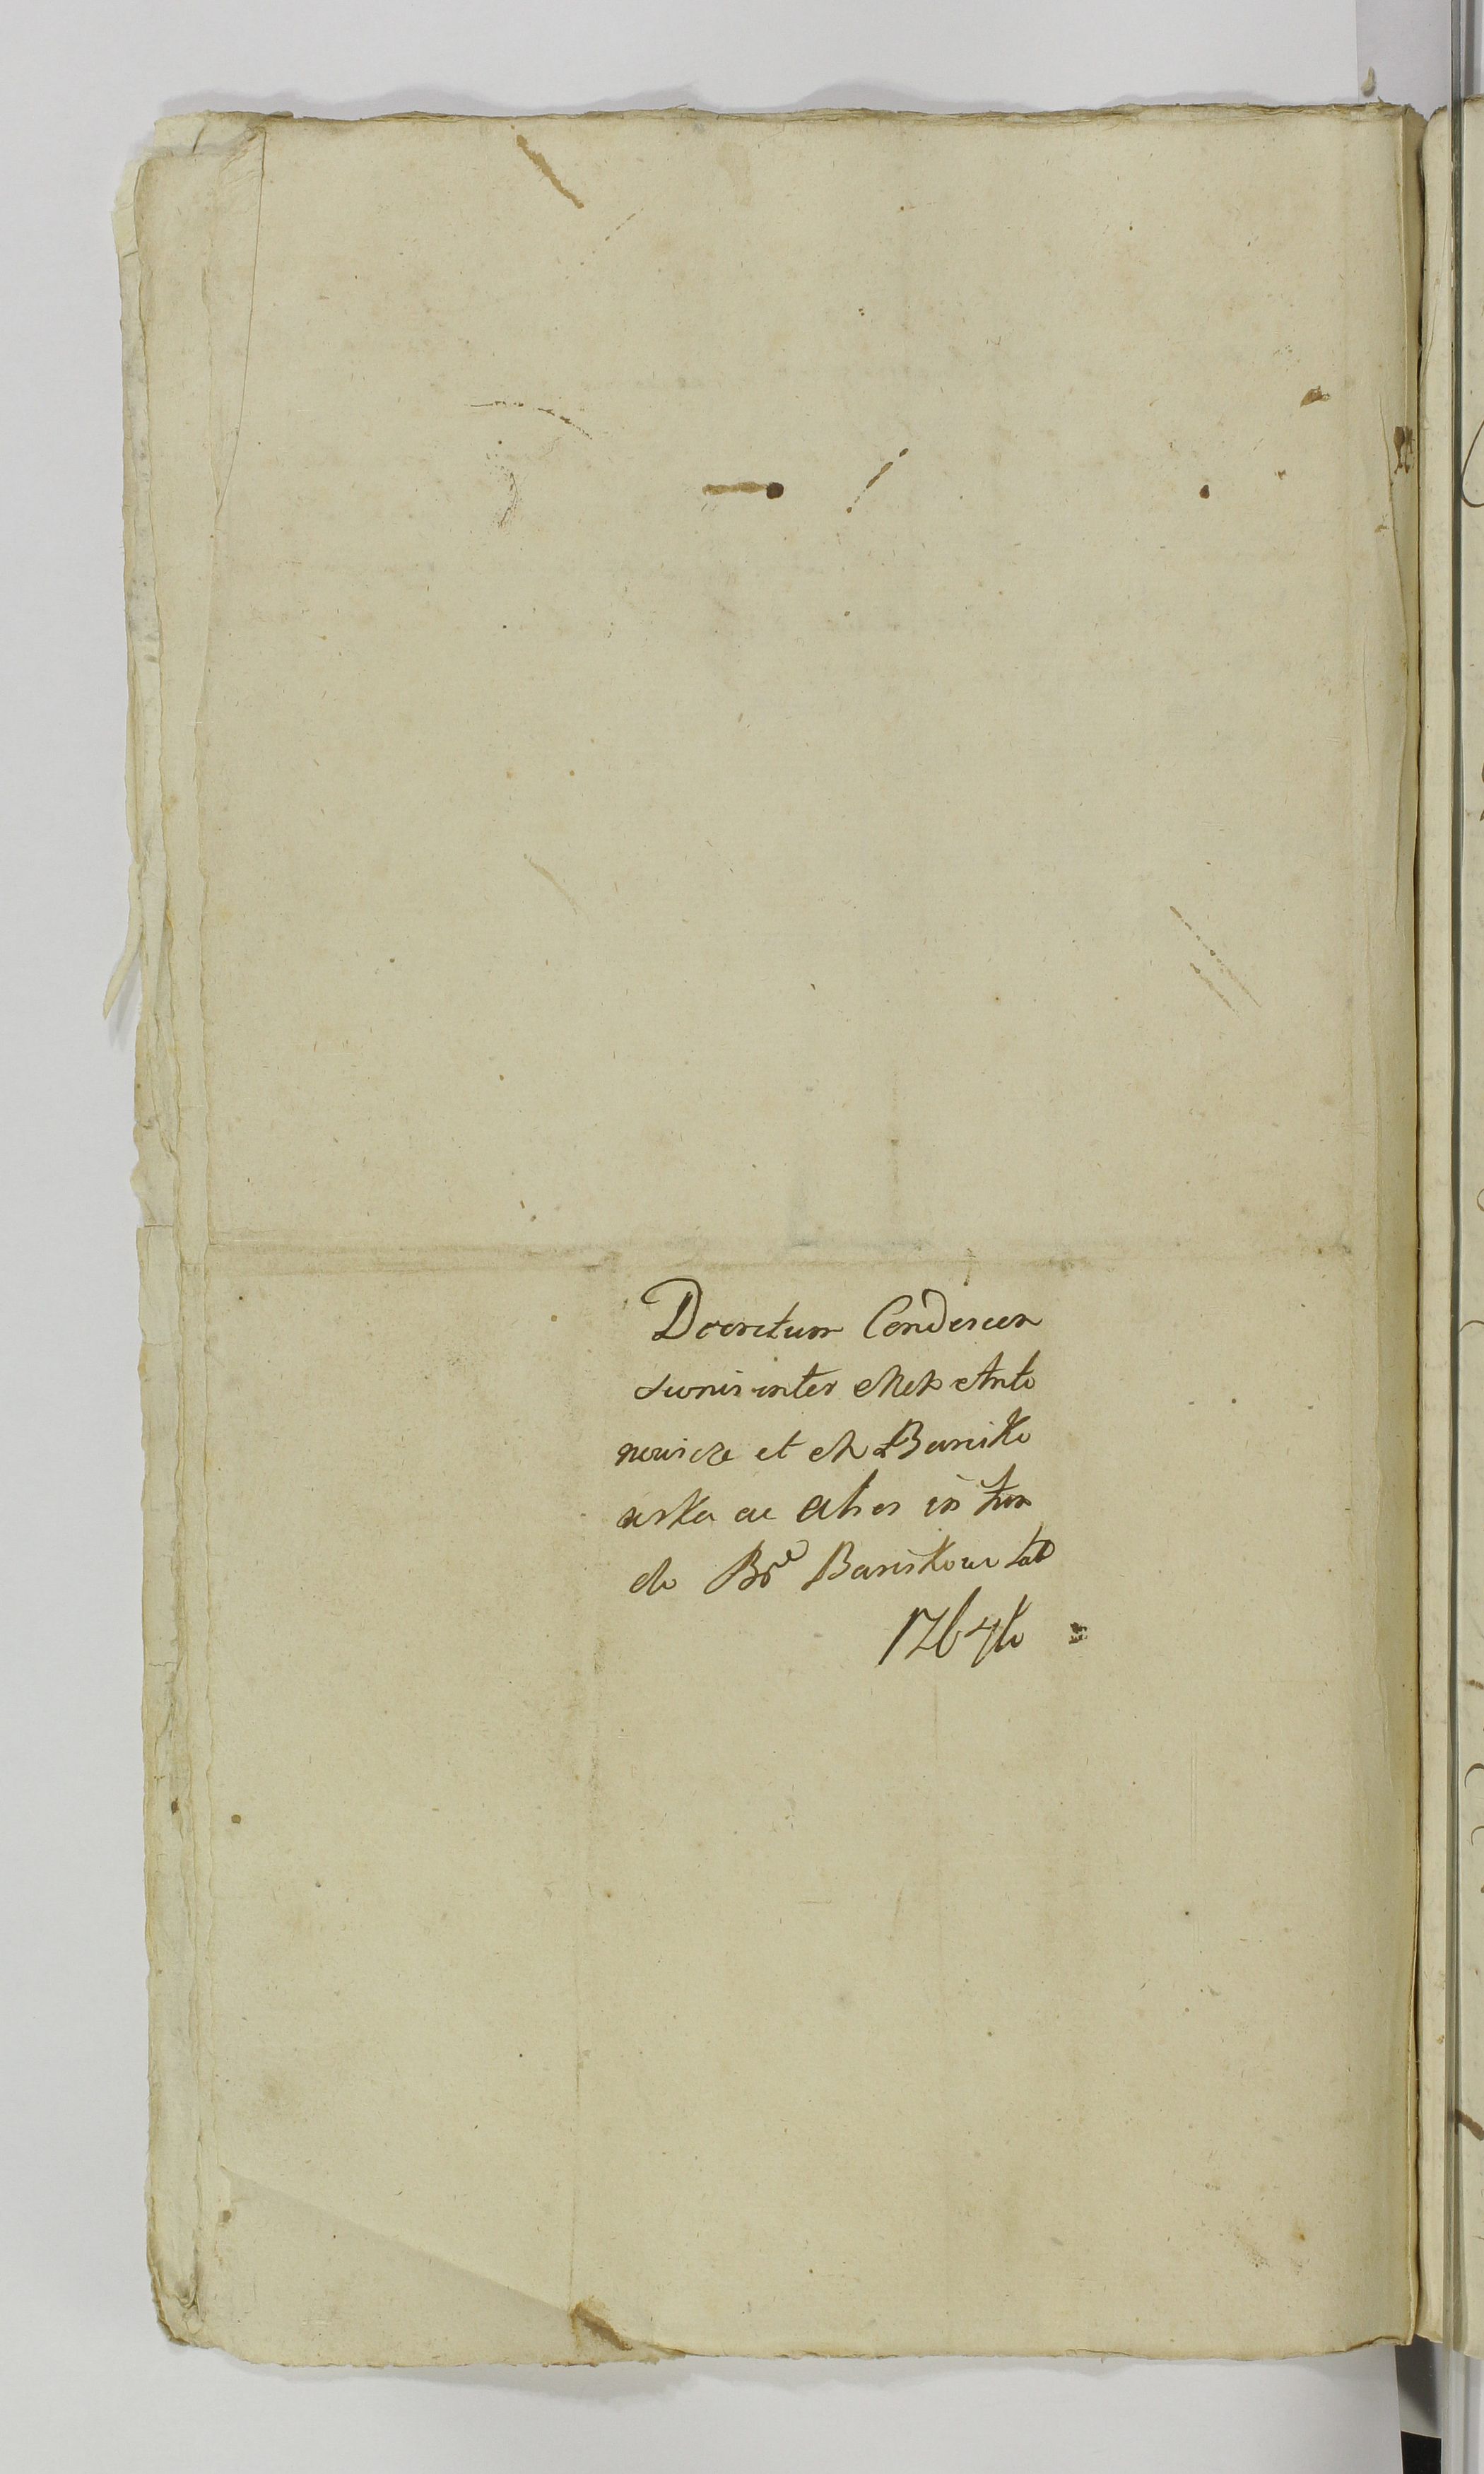 Decretum Condescen
sionis inter MM Anto
nowicze et M Barsko
wska ac alios in fun
do Bo Barskow lat
1764to